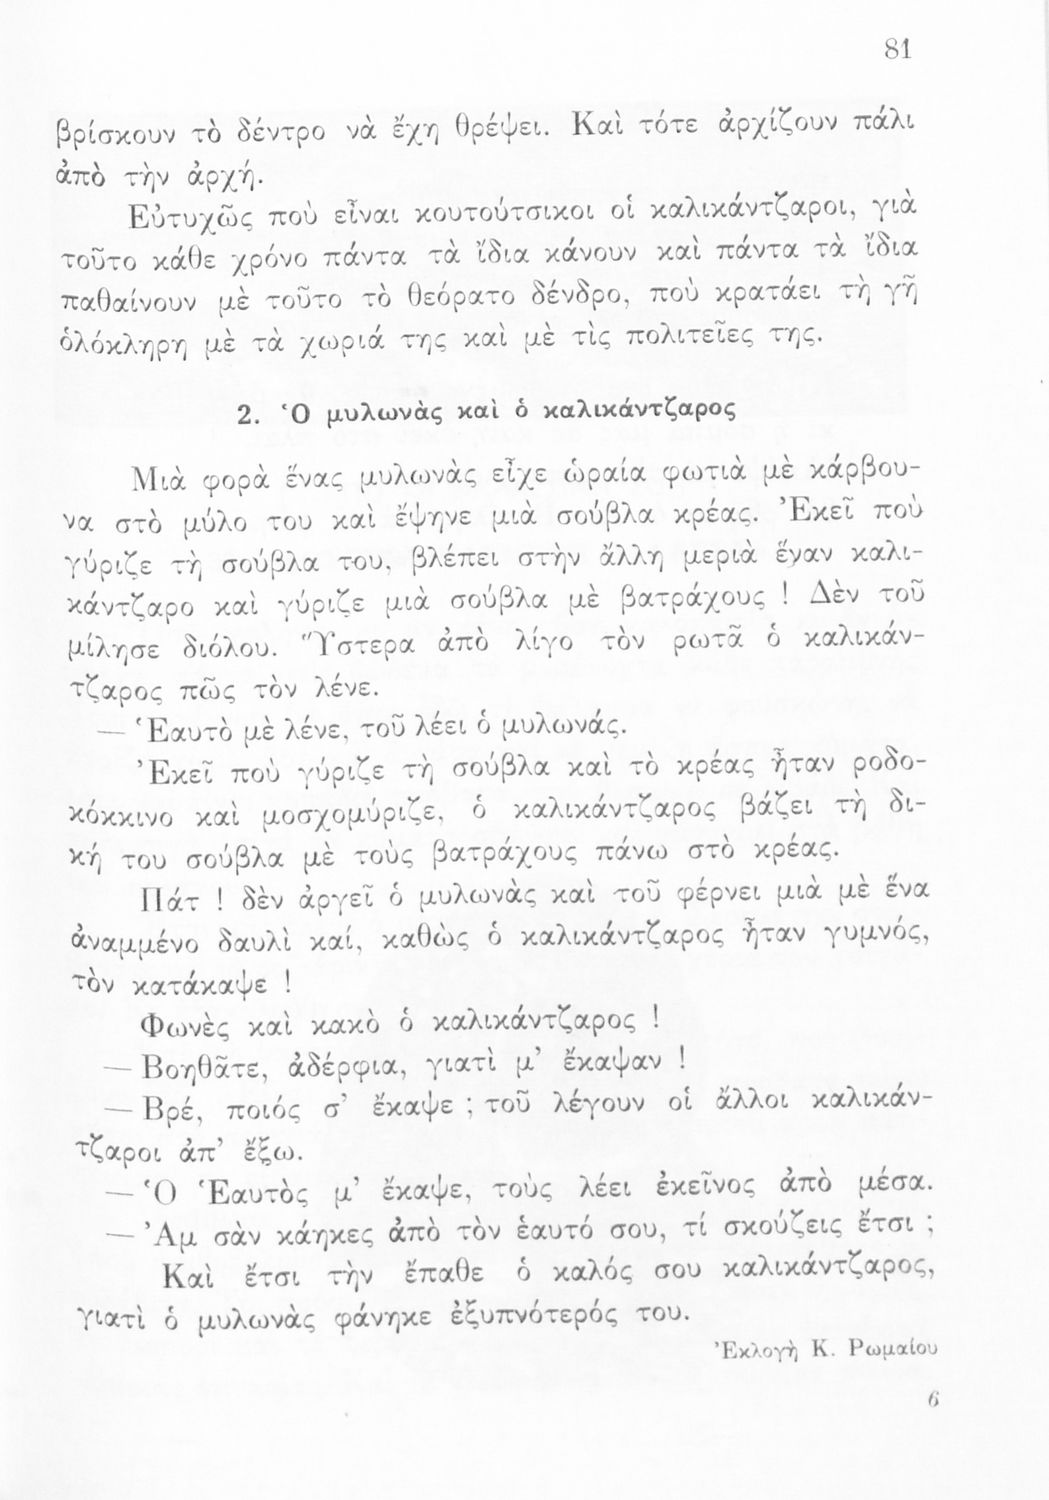 81
βρίσκουν τὸ δέντρο νὰ ἔχη θρέψει. Καὶ τότε ἀρχίζουν πάλι
ἀπὸ τὴν ἀρχή.
Εὐτυχῶς ποὺ εἶναι κουτούτσικοι οἱ καλικάντζαροι, γιὰ
τοῦτο κάθε χρόνο πάντα τὰ ἴδια κάνουν καὶ πάντα τὰ ἴδια
παθαίνουν μὲ τοῦτο τὸ θεόρατο δένδρο, ποὺ κρατάει τὴ γῆ
ὁλόκληρη μὲ τὰ χωριά της καὶ μὲ τὶς πολιτεῖες της.
2. Ὁ μυλωνὰς καὶ ὁ καλικάντζαρος
Μιὰ φορὰ ἕνας μυλωνὰς εἶχε ὡραία φωτιὰ μὲ κάρβου-
να στὸ μύλο του καὶ ἔψηνε μιὰ σούβλα κρέας. Ἐκεῖ ποὺ
γύριζε τὴ σούβλα του, βλέπει στὴν ἄλλη μεριὰ ἕναν καλι-
κάντζαρο καὶ γύριζε μιὰ σούβλα μὲ βατράχους ! Δὲν τοῦ
μίλησε διόλου. Ὕστερα ἀπὸ λίγο τὸν ρωτᾶ ὁ καλικάν-
τζαρος πῶς τὸν λένε.
— Ἑαυτὸ μὲ λένε, τοῦ λέει ὁ μυλωνάς.
Ἐκεῖ ποὺ γύριζε τὴ σούβλα καὶ τὸ κρέας ἦταν ροδο-
κόκκινο καὶ μοσχομύριζε, ὁ καλικάντζαρος βάζει τὴ δι-
κή του σούβλα μὲ τοὺς βατράχους πάνω στὸ κρέας.
Πάτ ! δὲν ἀργεῖ ὁ μυλωνὰς καὶ τοῦ φέρνει μιὰ μὲ ἕνα
ἀναμμένο δαυλὶ καί, καθὼς ὁ καλικάντζαρος ἦταν γυμνός,
τὸν κατάκαψε !
Φωνὲς καὶ κακὸ ὁ καλικάντζαρος !
— Βοηθᾶτε, ἀδέρφια, γιατὶ μ’ ἔκαψαν !
— Βρέ, ποιός σ’ ἔκαψε ; τοῦ λέγουν οἱ ἄλλοι καλικάν-
τζαροι ἀπ’ ἔξω.
— Ὁ Ἑαυτὸς μ’ ἔκαψε, τοὺς λέει ἐκεῖνος ἀπὸ μέσα.
— Ἀμ σὰν κάηκες ἀπὸ τὸν ἑαυτό σου, τί σκούζεις ἔτσι ;
Καὶ ἔτσι τὴν ἔπαθε ὁ καλός σου καλικάντζαρος,
γιατὶ ὁ μυλωνὰς φάνηκε ἐξυπνότερός του.
Ἐκλογὴ Κ. Ρωμαίου
6